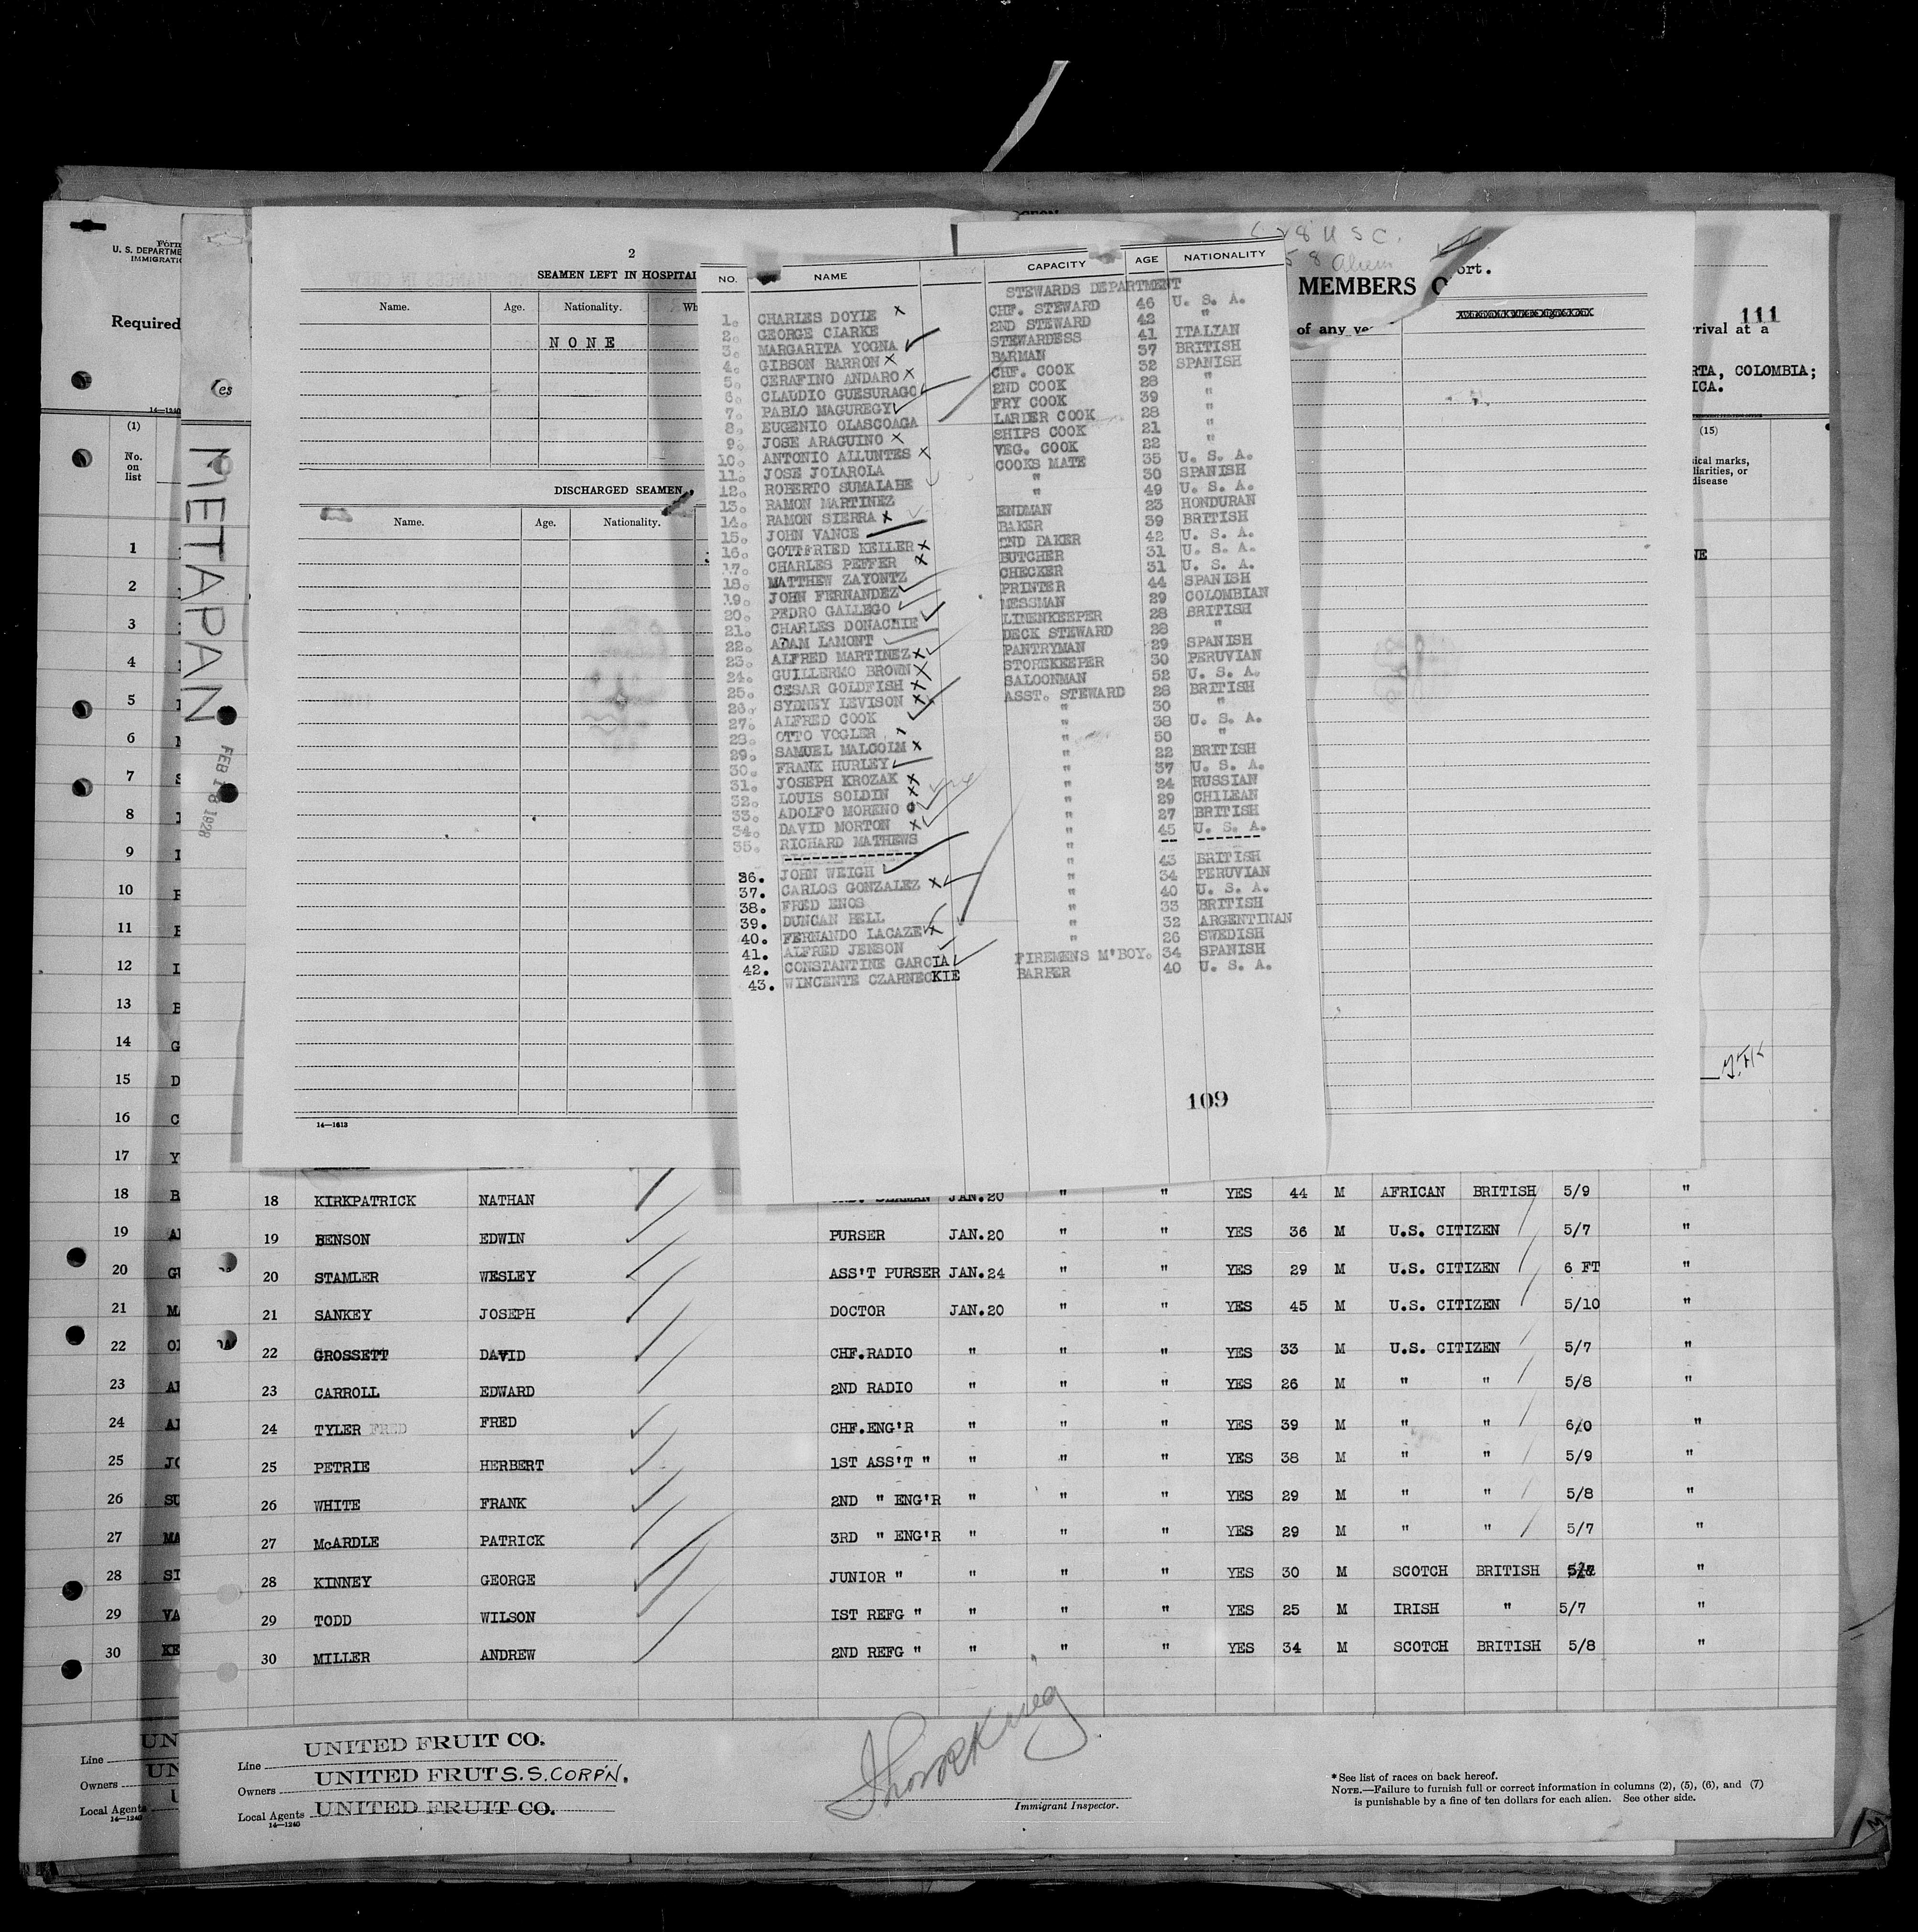 Form
U. S. DEPARTME
IMMIGRATI
Required
14—1240
(1)
No.
on
list
METAPAN
FEB 18 1928
2
SEAMEN LEFT IN HOSPITAL
Name. Age. Nationality. Wh
NONE
DISCHARGED SEAMEN.
Name. Age. Nationality.
14—1613
NO. NAME CAPACITY AGE NATIONALITY
STEWARDS DEPARTMENT
1. CHARLES DOYLE CHF. STEWARD 46 U. S. A.
2. GEORGE CLARKE 2ND STEWARD 42 "
3. MARGARITA YOGNA STEWARDESS 41 ITALIAN
4. GIBSON BARRON BARMAN 37 BRITISH
5. CERAFINO ANDARO CHF. COOK 32 SPANISH
6. CLAUDIO GUESURAGO 2ND COOK 28 "
7. PABLO MAGUREGY FRY COOK 39 "
8. EUGENIO OLASCOAGA LARDER COOK 28 "
9. JOSE ARAGUINO SHIPS COOK 21 "
10. ANTONIO ALLUNTES VEG. COOK 22 "
11. JOSE JOIAROLA COOKS MATE 35 U. S. A.
12. ROBERTO SUMALABE " 30 SPANISH
13. RAMON MARTINEZ " 49 U. S. A.
14. RAMON SIERRA ENDMAN 23 HONDURAN
15. JOHN VANCE BAKER 39 BRITISH
16. GOTTFRIED KELLER 2ND BAKER 42 U. S. A.
17. CHARLES PEFFER BUTCHER 31 U. S. A.
18. MATTHEW ZAYONTZ CHECKER 31 U. S. A.
19. JOHN FERNANDEZ PRINTER 44 SPANISH
20. PEDRO GALLEGO MESSMAN 29 COLOMBIAN
21. CHARLES DONACHIE LINENKEEPER 28 BRITISH
22. ADAM LAMONT DECK STEWARD 28 "
23. ALFRED MARTINEZ PANTRYMAN 29 SPANISH
24. GUILLERMO BROWN STOREKEEPER 30 PERUVIAN
25. CESAR GOLDFISH SALOONMAN 52 U. S. A.
26. SYDNEY LEVISON ASST. STEWARD 28 BRITISH
27. ALFRED COOK " 30 "
28. OTTO VOGLER " 38 U. S. A.
29. SAMUEL MALCOLM " 50 "
30. FRANK HURLEY " 22 BRITISH
31. JOSEPH KROZAK " 37 U. S. A.
32. LOUIS SOLDIN " 24 RUSSIAN
33. ADOLFO MORENO " 29 CHILEAN
34. DAVID MORTON " 27 BRITISH
35. RICHARD MATHEWS " 45 U. S. A.
36. JOHN WEIGH " 43 BRITISH
37. CARLOS GONZALEZ " 34 PERUVIAN
38. FRED ENOS " 40 U. S. A.
39. DUNCAN BELL " 33 BRITISH
40. FERNANDO LACAZE " 32 ARGENTINAN
41. ALFRED JENSON " 26 SWEDISH
42. CONSTANTINE GARCIA FIREMENS M'BOY. 34 SPANISH
43. WINCENTE CZARNECKIE BARBER 40 U. S. A.
109
U S C.
58 Alien
MEMBERS O
ort.
of any ve
111
rrival at a
RTA, COLOMBIA;
ICA.
(15)
sical marks,
liarities, or
disease
18 KIRKPATRICK NATHAN ORD. SEAMAN JAN.20 " " YES 44 M AFRICAN BRITISH 5/9 "
19 BENSON EDWIN PURSER JAN.20 " " YES 36 M U.S. CITIZEN 5/7 "
20 STAMLER WESLEY ASS'T PURSER JAN.24 " " YES 29 M U.S. CITIZEN 6 FT "
21 SANKEY JOSEPH DOCTOR JAN.20 " " YES 45 M U.S. CITIZEN 5/10 "
22 GROSSETT DAVID CHF.RADIO " " " YES 33 M U.S. CITIZEN 5/7 "
23 CARROLL EDWARD 2ND RADIO " " " YES 26 M " " 5/8 "
24 TYLER FRED FRED CHF.ENG'R " " " YES 39 M " " 6/0 "
25 PETRIE HERBERT 1ST ASS'T " " " " YES 38 M " " 5/9 "
26 WHITE FRANK 2ND " ENG'R " " " YES 29 M " " 5/8 "
27 McARDLE PATRICK 3RD " ENG'R " " " YES 29 M " " 5/7 "
28 KINNEY GEORGE JUNIOR " " " " YES 30 M SCOTCH BRITISH "
29 TODD WILSON IST REFG " " " " YES 25 M IRISH " 5/7 "
30 MILLER ANDREW 2ND REFG " " " " YES 34 M SCOTCH BRITISH 5/8 "
Line UNITED FRUIT CO.
Owners UNITED FRUT S.S. CORP'N.
Local Agents UNITED FRUIT CO.
14—1240
Immigrant Inspector.
*See list of races on back hereof.
NOTE.—Failure to furnish full or correct information in columns (2), (5), (6), and (7)
is punishable by a fine of ten dollars for each alien. See other side.